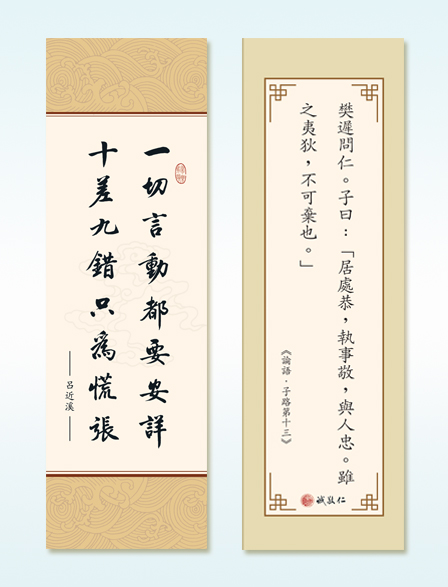 一切言動都要安詳
十差九錯只為慌張
呂近溪
樊遲問仁。子曰：「居處恭，執事敬，與人忠。雖
之夷狄，不可棄也。」
《論語．子路第十三》
誠敬仁